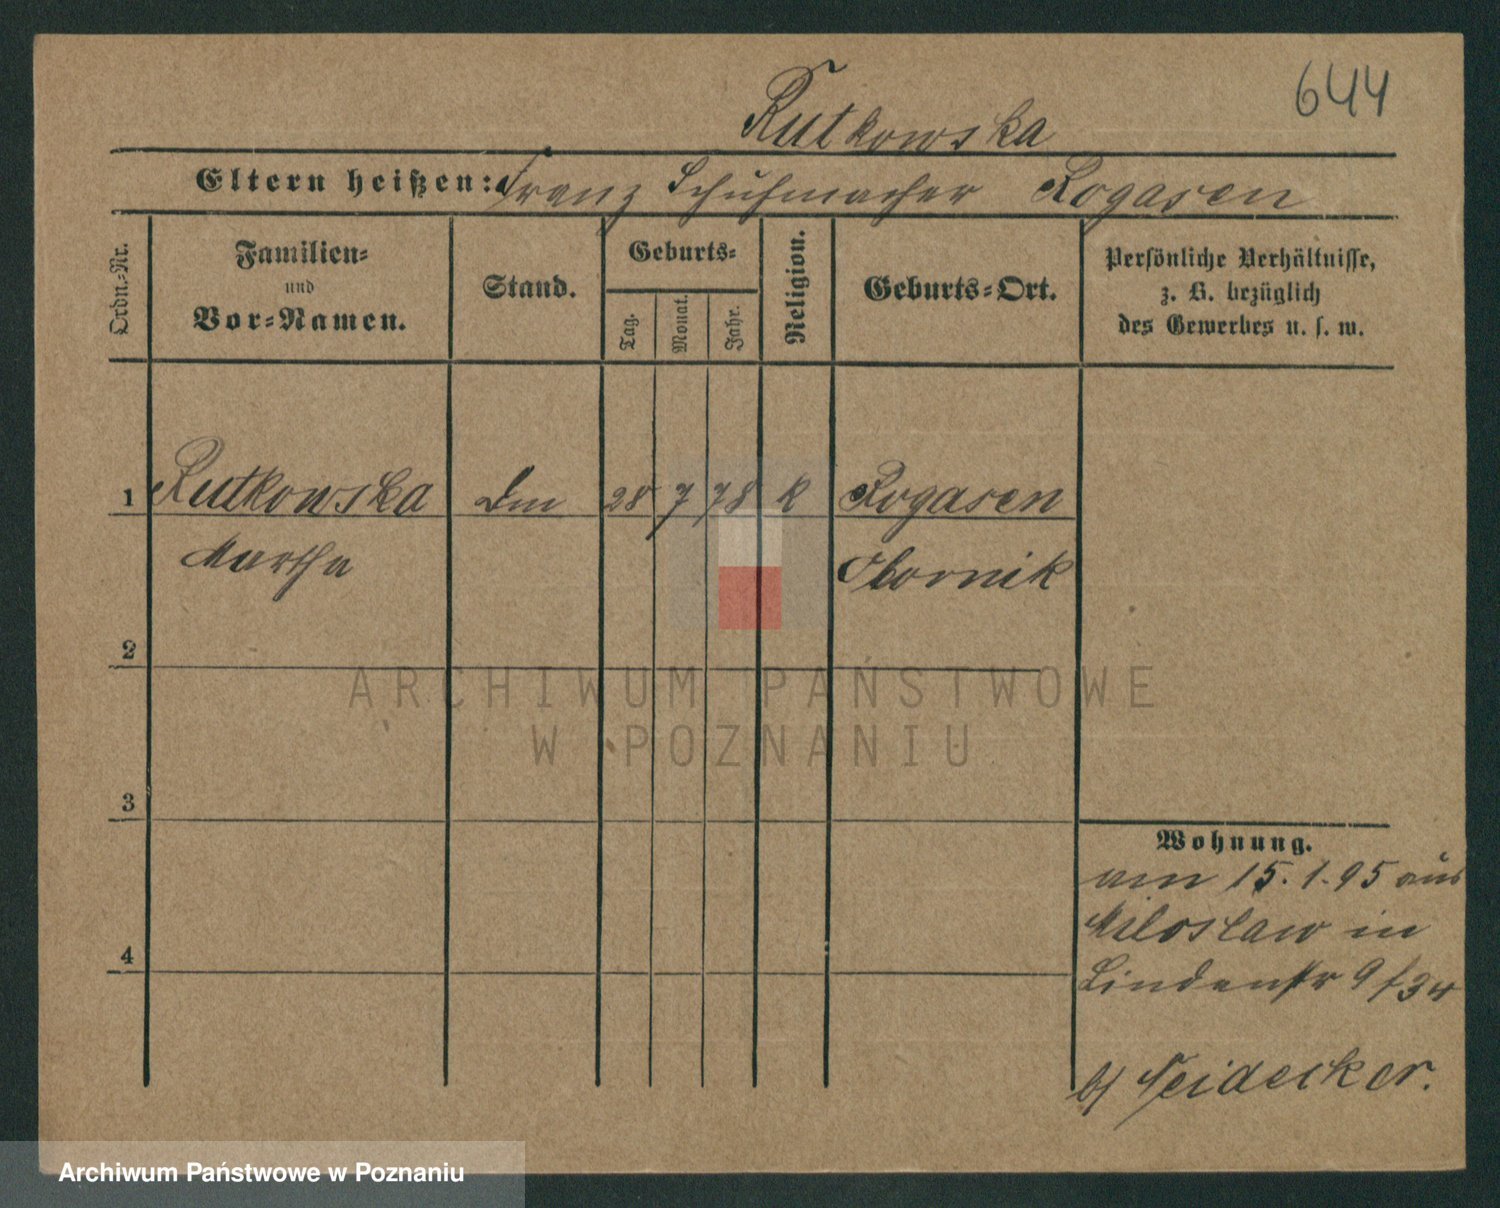 644
Rutkowska
Eltern heißen: Franz Schuhmacher Rogasen
Ordn.-Nr.
Familien-
und
Vor-Namen.
Stand.
Geburts-
Tag.
Monat.
Jahr.
Religion.
Geburts-Ort.
Persönliche Verhältnisse,
z. B. bezüglich
des Gewerbes u. s. w.
1 Rutkowska Dm 28 7 78 k Rogasen
Martha Obornik
2
ARCHIWUM PAŃSTWOWE
W POZNANIU
3
Wohnung.
am 15.1.95 aus
Miloslaw in
Lindenstr 9
4
b/ Neidecker.
Archiwum Państwowe w Poznaniu